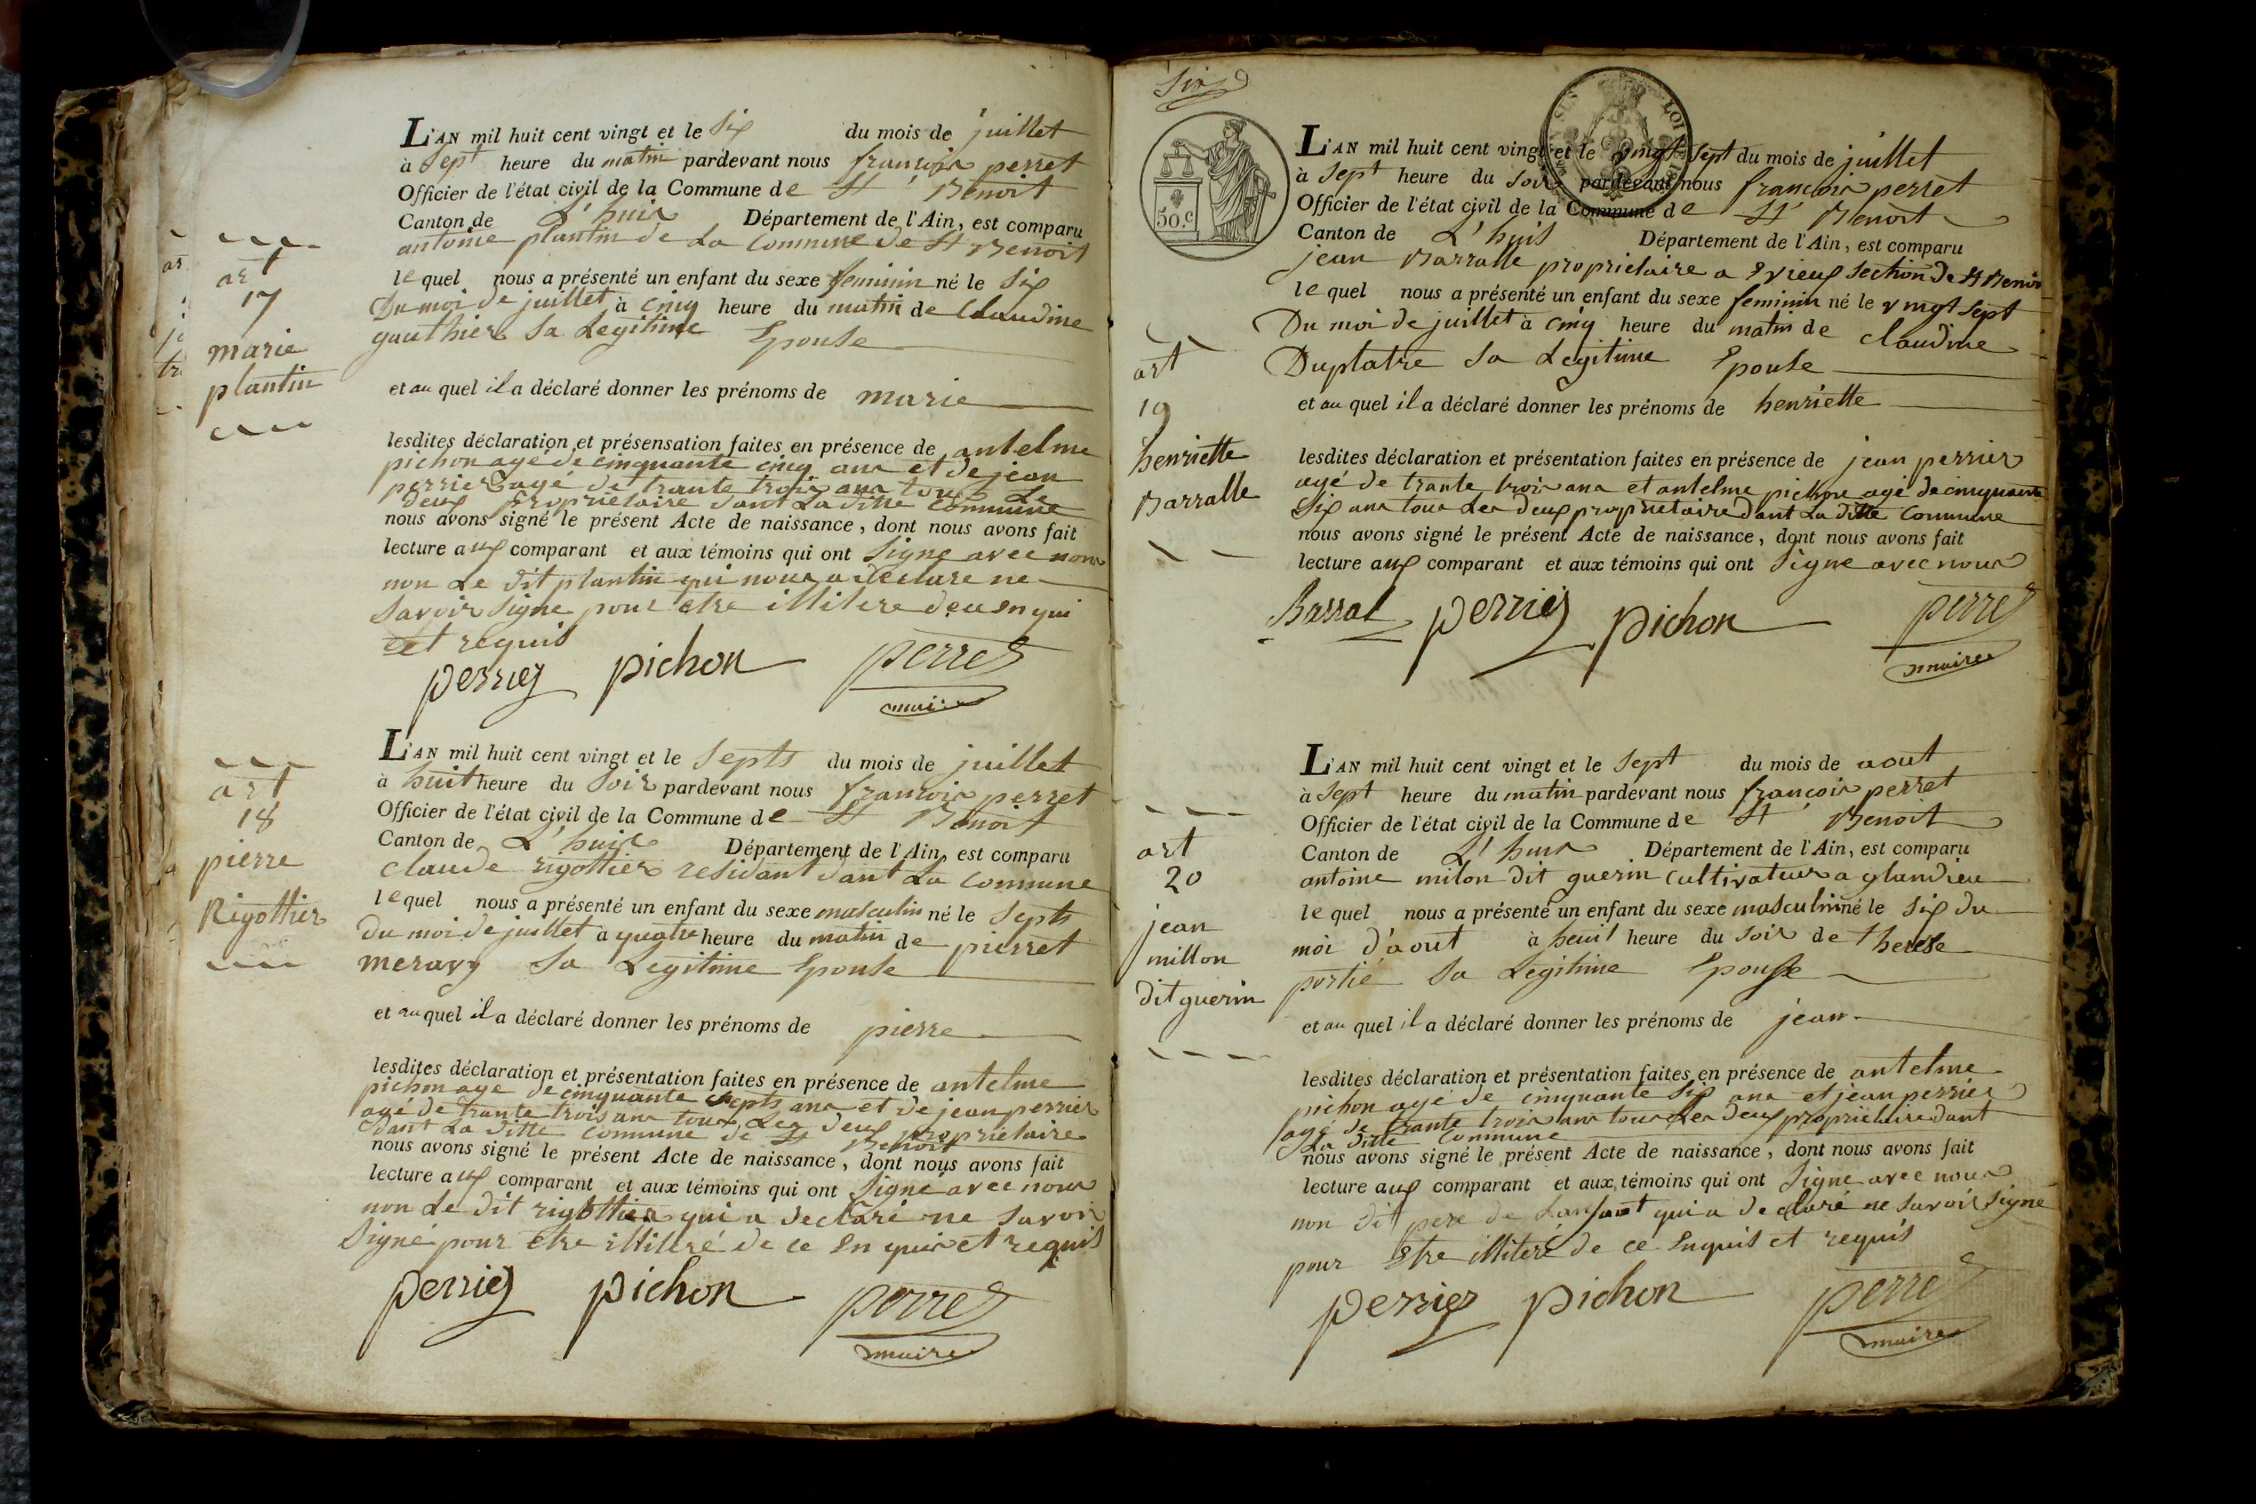 art
17
marie
plantin
L'AN mil huit cent vingt et le Six du mois de juillet
à Sept heure du matin pardevant nous françois perret
Officier de l'état civil de la Commune de St Benoit
Canton de L'huis Département de l'Ain, est comparu
antoine plantin de La Commune de St Benoit
lequel nous a présenté un enfant du sexe feminin né le Six
Du moi de juillet à cinq heure du matin de Claudine
gauthier Sa Legitime Epouse
et au quel il a déclaré donner les prénoms de marie
lesdites déclaration et présensation faites en présence de antelme
pichon agé de cinquante cinq ans et de jean
perrier agé de trante trois ans tous Le
deux propriétaire dant La ditte Commune
nous avons signé le présent Acte de naissance, dont nous avons fait
lecture aux comparant et aux témoins qui ont Signe avec nous
non Le dit plantin qui nous a déclare ne
Savoir Signe pour être illitere de ce enqui
et requis
perrier pichon perret
maire
art
18
pierre
Rigottier
L'AN mil huit cent vingt et le Septs du mois de juillet
à huit heure du Soir pardevant nous françois perret
Officier de l'état civil de la Commune de St Benoit
Canton de L'huis Département de l'Ain, est comparu
claude rigottier residant dant La Commune
lequel nous a présenté un enfant du sexe masculin né le Septs
Du moi de juillet à quatre heure du matin de pierret
meravy Sa Legitime Epouse
et au quel il a déclaré donner les prénoms de pierre
lesdites déclaration et présentation faites en présence de antelme
pichon age de cinquante Septs ans et de jean perrier
agé de trante trois ans tous Les deux propriétaire
dant La ditte Commune de St Benoit
nous avons signé le présent Acte de naissance, dont nous avons fait
lecture aux comparant et aux témoins qui ont Signé avec nous
non Le dit rigottier qui a declaré ne Savoir
Signé pour être illiteré de ce En quis et requis
perrier pichon perret
maire
Six
50.c
art
19
henriette
Barralle
L'AN mil huit cent vingt et le vingt Sept du mois de juillet
à Sept heure du Soir pardevant nous françois perret
Officier de l'état civil de la Commune de St Benoit
Canton de L'huis Département de l'Ain, est comparu
jean Barralle proprietaire a Evieux Section de St Benoi
lequel nous a présenté un enfant du sexe feminin né le vingt Sept
Du moi de juillet à cinq heure du matin de claudine
Duplatre Sa Legitime Epouse
et au quel il a déclaré donner les prénoms de henriette
lesdites déclaration et présentation faites en présence de jean perrier
agé de trante trois ans et antelme pichon agé de cinquante
Six ans tous Les deux propriétaire dant La ditte Commune
nous avons signé le présent Acte de naissance, dont nous avons fait
lecture aux comparant et aux témoins qui ont Signe avec nous
Barral perrier pichon perret
maire
art
20
jean
millon
dit guerin
L'AN mil huit cent vingt et le Sept du mois de aout
à Sept heure du matin pardevant nous françois perret
Officier de l'état civil de la Commune de St Benoit
Canton de L'huis Département de l'Ain, est comparu
antoine milon dit guerin Cultivateur a glandieu
lequel nous a présenté un enfant du sexe masculin né le Six du
moi d'aout à heuit heure du Soir de therese
portie Sa Legitime Epouse
et au quel il a déclaré donner les prénoms de jean
lesdites déclaration et présentation faites en présence de antelme
pichon agé de cinquante Six ans et jean perrier
agé de trante trois ans tous Les deux propriétaire dant
La ditte Commune
nous avons signé le présent Acte de naissance, dont nous avons fait
lecture aux comparant et aux témoins qui ont Signe avec nous
non dit pere de Lanfant qui a declaré ne Savoir Signé
pour Etre illiteré de ce Enquis et requis
perrier pichon perret
maire